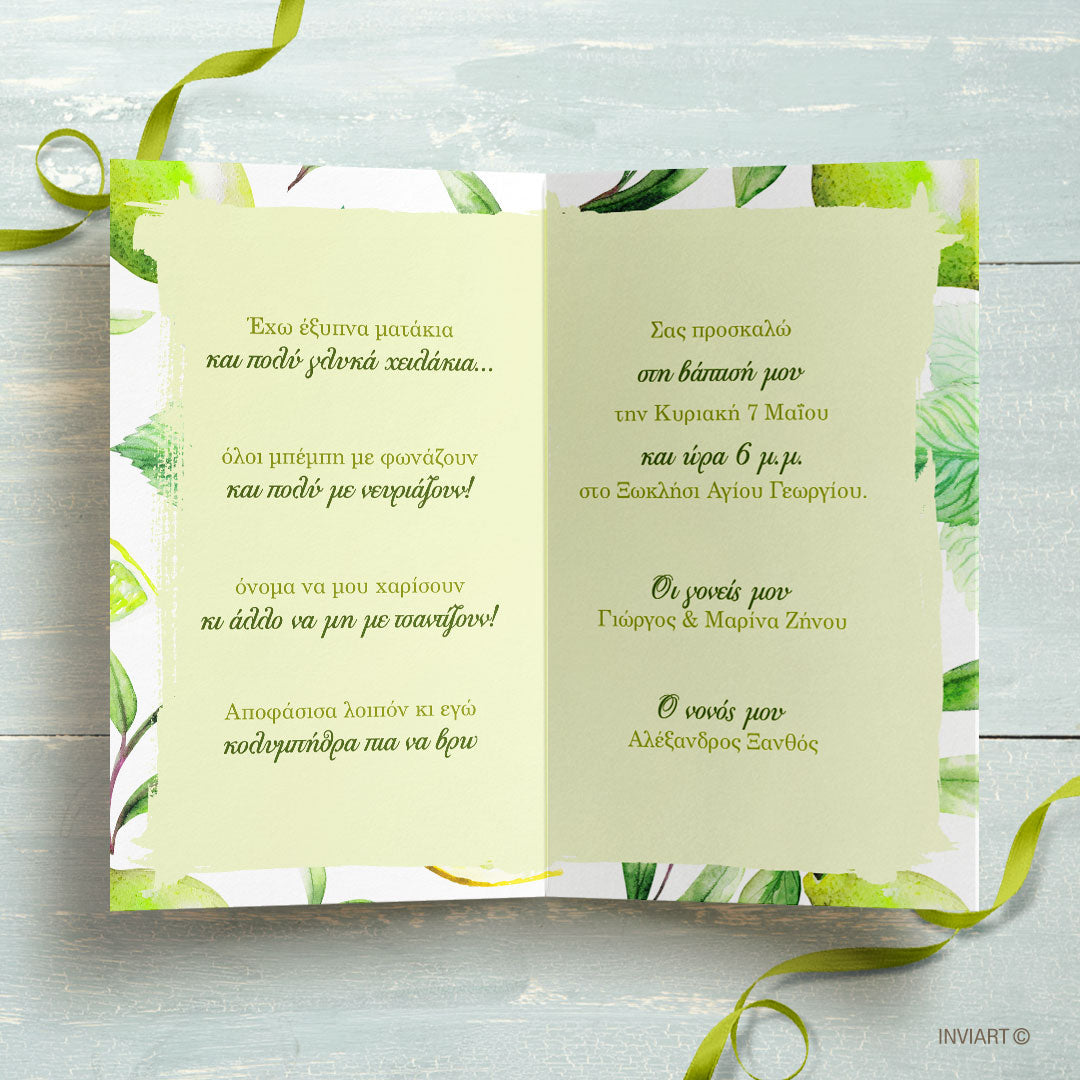 Έχω έξυπνα ματάκια
και πολύ γλυκά χειλάκια...
όλοι μπέμπη με φωνάζουν
και πολύ με νευριάζουν!
όνομα να μου χαρίσουν
κι άλλο να μη με τσαντίζουν!
Αποφάσισα λοιπόν κι εγώ
κολυμπήθρα πια να βρω
Σας προσκαλώ
στη βάπτισή μου
την Κυριακή 7 Μαΐου
και ώρα 6 μ.μ.
στο Ξωκλήσι Αγίου Γεωργίου.
Οι γονείς μου
Γιώργος & Μαρίνα Ζήνου
Ο νονός μου
Αλέξανδρος Ξανθός
INVIART ©